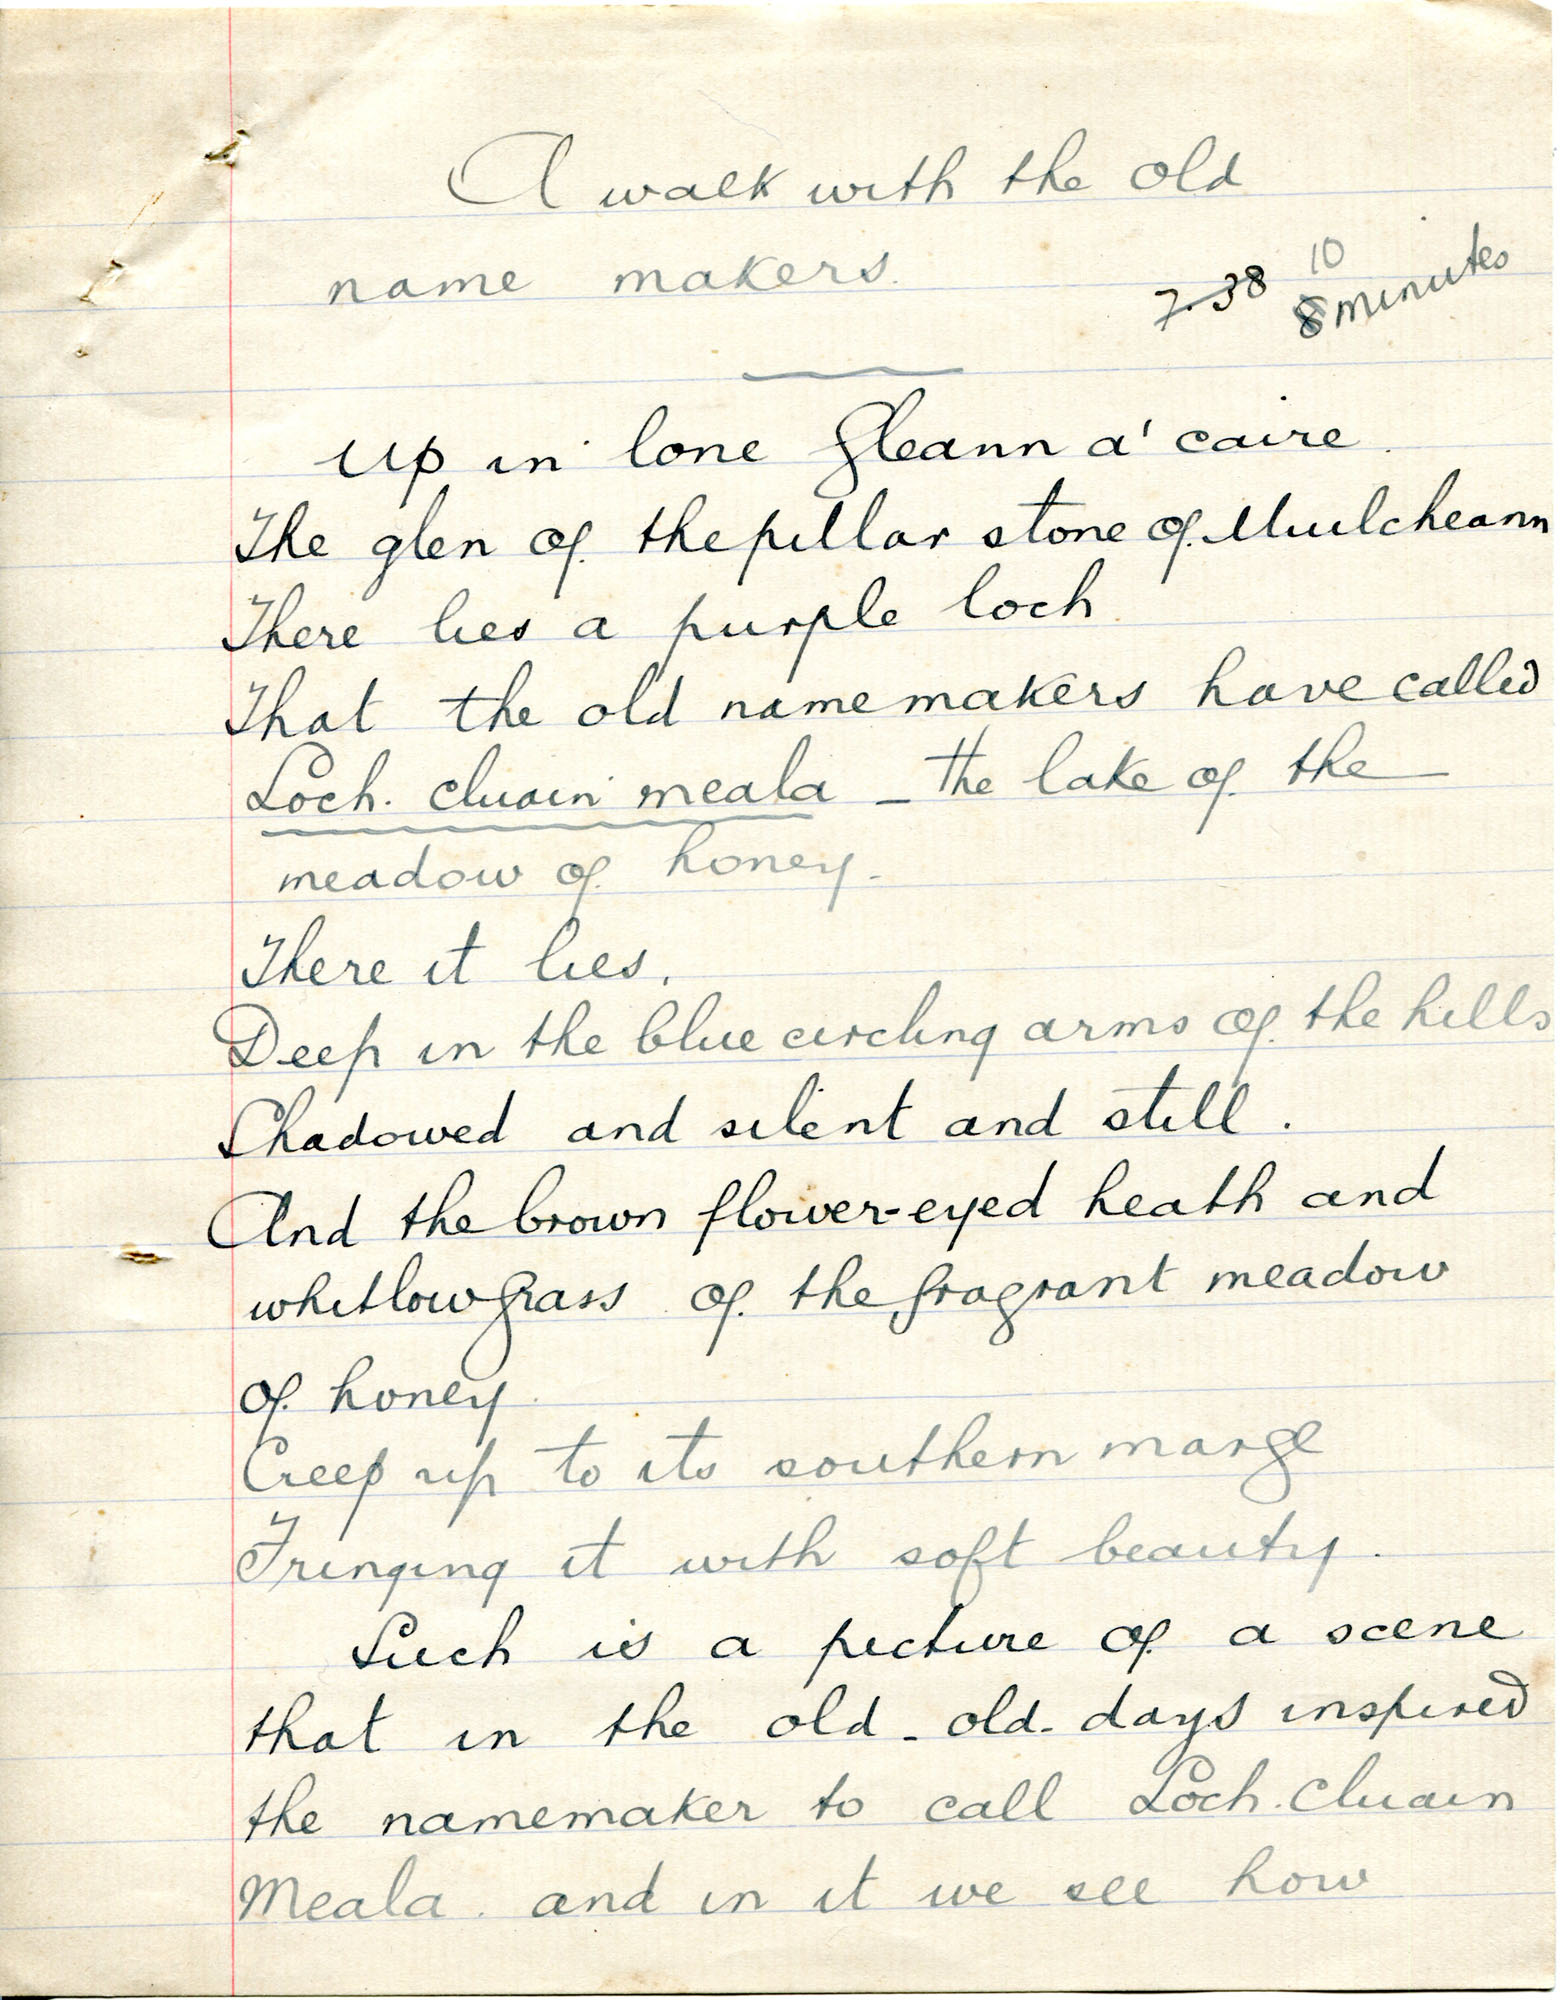 A walk with the old
name makers.
7.38 10
8 minutes
Up in lone Gleann a' caire.
The glen of the pillar stone of Muilcheann
There lies a purple loch
That the old namemakers have called
Loch. cluain meala - the lake of the
meadow of honey.
There it lies,
Deep in the blue circling arms of the hills
Shadowed and silent and still.
And the brown flower-eyed heath and
whitlow grass of the fragrant meadow
of honey
Creep up to its southern marge
Fringing it with soft beauty.
Such is a picture of a scene
that in the old - old - days inspired
the namemaker to call Loch. Cluain
Meala. and in it we see how